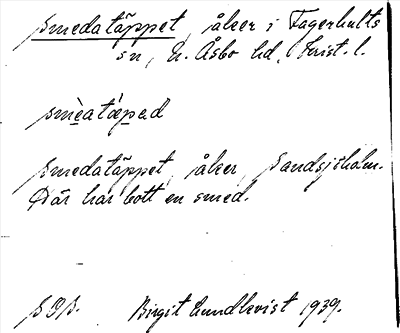 Smedatäppet, åker i Fagerhults
sn, N. Åsbo hd, Krist. l.
smèatǽpad
Smedatäppet, åker, Sandsjöholm.
Där har bott en smed.
Birgit Lundkvist 1939.